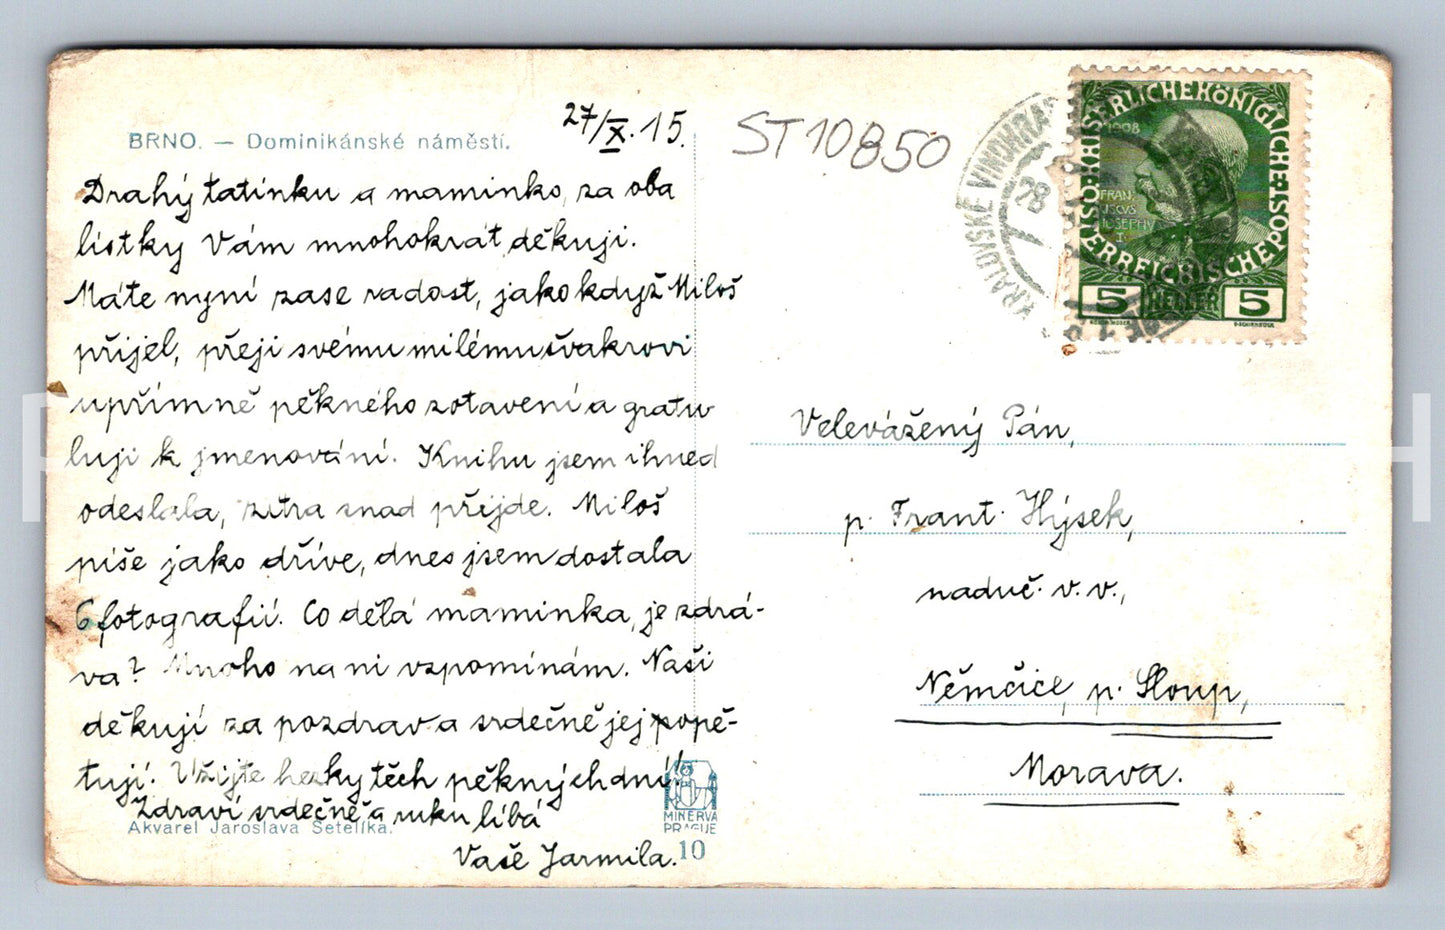 BRNO. — Dominikánské náměstí.
27/X. 15.
Drahý tatínku a maminko, za oba
lístky Vám mnohokrát děkuji.
Máte nyní zase radost, jako když Miloš
přijel, přeji svému milému švakrovi
upřímně pěkného zotavení a gratu-
luji k jmenování. Knihu jsem ihned
odeslala, zítra snad přijde. Miloš
píše jako dříve, dnes jsem dostala
6 fotografií. Co dělá maminka, je zdrá-
va? Mnoho na ni vzpomínám. Naši
děkují za pozdrav a srdečně jej opě-
tují. Užijte hezky těch pěkných dní!
Zdraví srdečně a ruku líbá
Akvarel Jaroslava Setelíka.
Vaše Jarmila.
MINERVA
PRAGUE
10
ST10850
KRÁLOVSKÉ VINOHRADY
28
KAISERLICHEKÖNIGLICHE
ÖSTERREICHISCHE POST
1908
FRAN
CISCVS
IOSEPHV
I
5 HELLER 5
Velevážený Pán,
p. Frant. Hýsek,
naduč. v. v.,
Němčice, p. Sloup,
Morava.